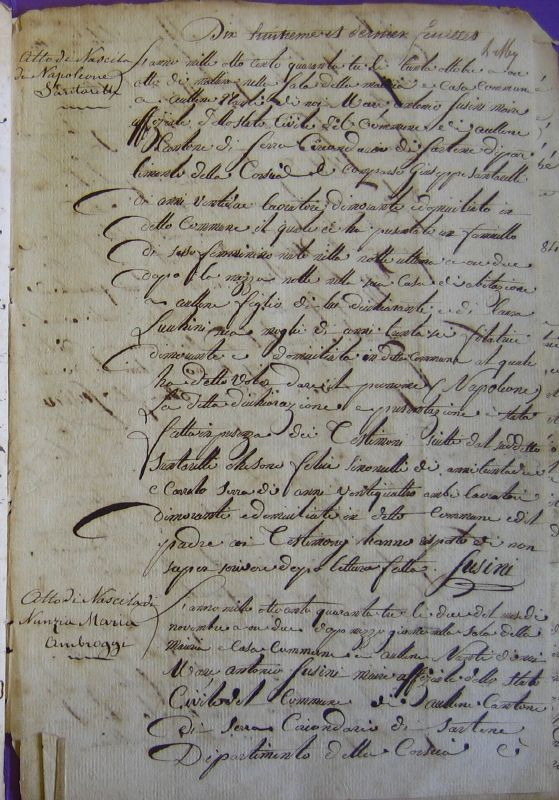 Dix huitieme et dernier feuillet
Atto di Nascita
di Napoleone
Santarelli
L'anno mille otto cento quaranta tre li trenta ottobre a ore
otto di mattina nella Sala della mairia e Casa Commune
di aullene Nanti di noi Marc' antonio Susini maire
uffiziale dello Stato Civile del Commune di aullene
Cantone di Serra Circondario di Sartene dipar
timento della Corsica è comparso Giuseppe Santarelli
di anni lavoratore dimorante e domiciliato in
detto Commune il quale ci ha presentato un fanciullo
di sesso femminino nato nella notte ultima a ore due
dopo la mezza notte nella sua Casa di abitazione
in aullene figlio di lui dichiarante e di
Susini sua moglie di anni trenta sei filatrice
dimorante e domiciliata in detto Commune al quale
ha detto voler dare il prenome (Napoleone)
La detta dichiarazione e presentazione è stata
fatta in presenza dei Testimoni Scritto dal suddetto
Santarelli che sono felice Simonelli di anni
e Carulo Serra di anni ventiquattro ambi lavoratori
dimoranti e domiciliati in detto Commune ed il
padre ai Testimonj hanno risposto di non
saper scrivere dopo lettura fatta. Susini
Atto di Nascita di
Nunzia Maria
Ambroggi
L'anno mille otto cento quaranta tre li due del mese di
novembre a ore due dopo mezzo giorno nella Sala della
Mairia e Casa Commune di aullene Nanti di noi
Marc' antonio Susini maire uffiziale dello Stato
Civile del Commune di aullene Cantone
di Serra Circondario di Sartene
Dipartimento della Corsica è